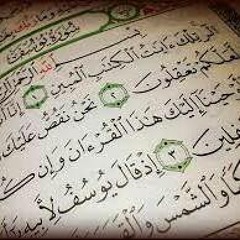 سُورَةُ يُوسُفَ
بِسْمِ اللَّهِ الرَّحْمَٰنِ
الٓر تِلْكَ ءَايَٰتُ الْكِتَٰبِ الْمُبِينِ ١ إِنَّا
لَّعَلَّكُمْ تَعْقِلُونَ ٢ نَحْنُ نَقُصُّ عَلَيْكَ
حَيْنَا إِلَيْكَ هَٰذَا الْقُرْءَانَ وَإِن كُ
فِلِينَ ٣ إِذْ قَالَ يُوسُفُ لِأَبِيهِ يَٰٓأَ
كَبًا وَالشَّمْسَ وَالْقَمَرَ